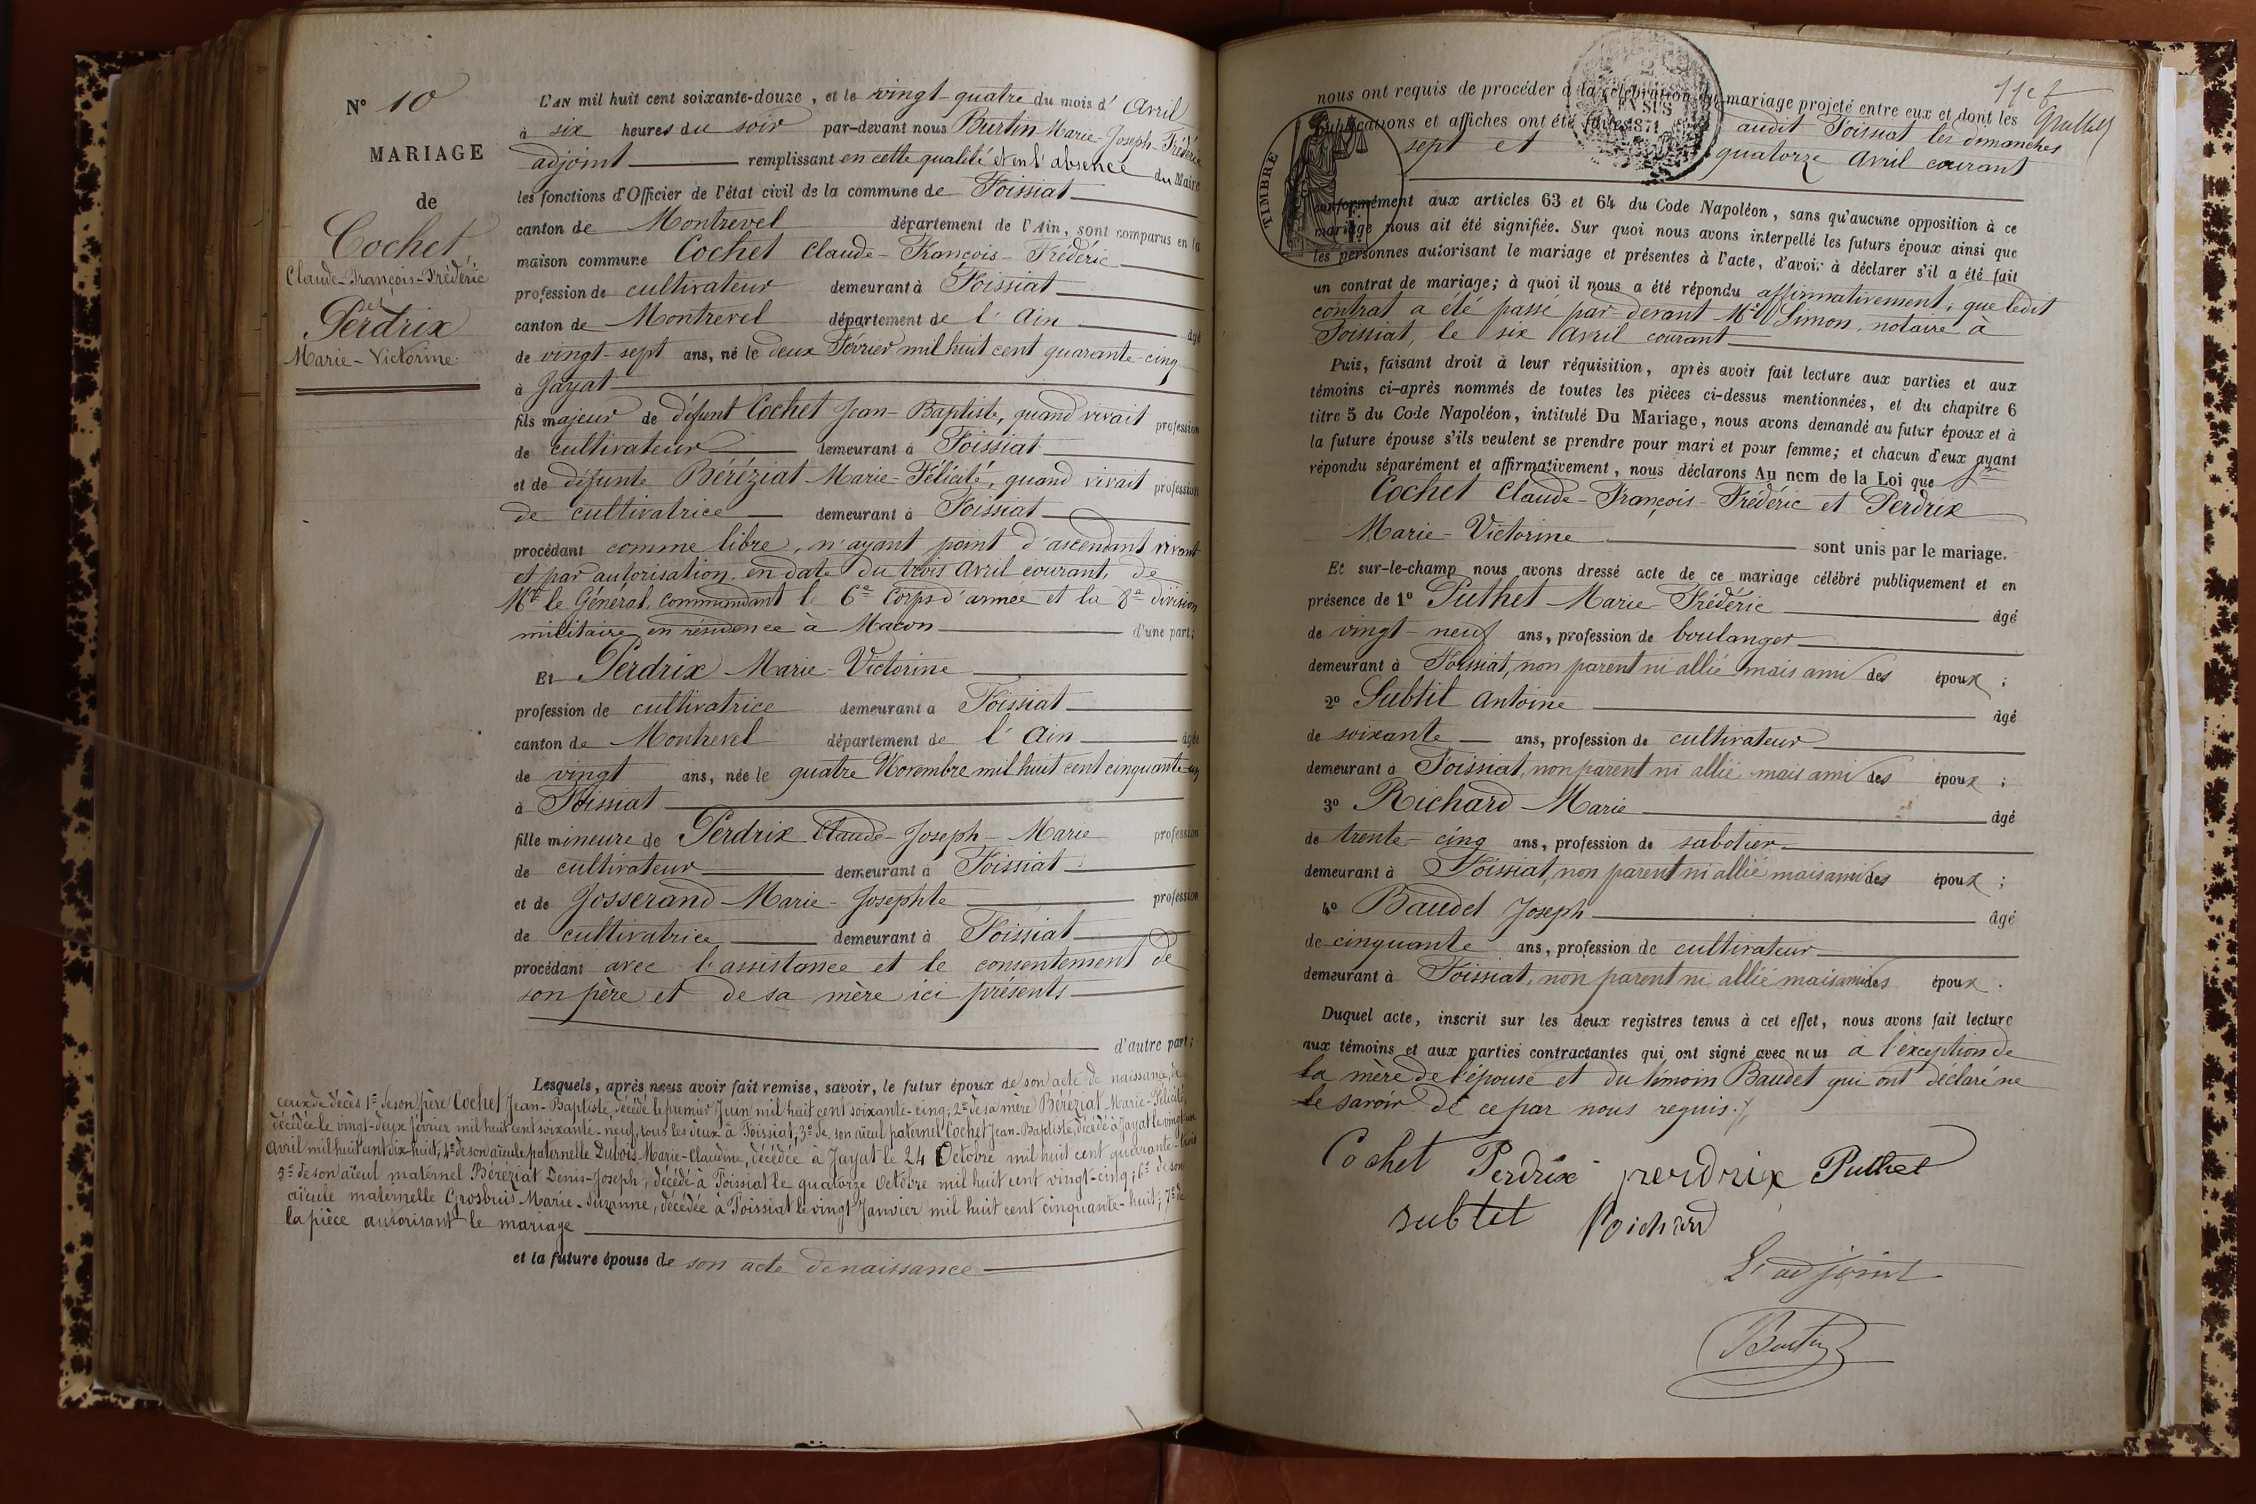 N° 10
MARIAGE
de
Cochet
Claude-François-Frédéric
et
Perdrix
Marie-Victorine.
L'AN mil huit cent soixante-douze, et le vingt-quatre du mois d'Avril
à six heures du soir par-devant nous Burtin Marie-Joseph-Frédéric
adjoint remplissant en cette qualité et en l'absence du Maire
les fonctions d'Officier de l'état civil de la commune de Foissiat
canton de Montrevel département de l'Ain, sont comparus en la
maison commune Cochet Claude-François-Frédéric
profession de cultivateur demeurant à Foissiat
canton de Montrevel département de l'Ain âgé
de vingt-sept ans, né le deux Février mil huit cent quarante-cinq
à Jayat
fils majeur de défunt Cochet Jean-Baptiste, quand vivait profession
de cultivateur demeurant à Foissiat
et de défunte Béréziat Marie-Félicité, quand vivait profession
de cultivatrice demeurant à Foissiat
procédant comme libre, n'ayant point d'ascendant vivant
et par autorisation en date du trois Avril courant, de
Mr le Général commandant le 6e Corps d'armée et la 8e division
militaire en résidence à Macon d'une part;
Et Perdrix Marie-Victorine
profession de cultivatrice demeurant à Foissiat
canton de Montrevel département de l'Ain âgée
de vingt ans, née le quatre Novembre mil huit cent cinquante-un
à Foissiat
fille mineure de Perdrix Claude-Joseph-Marie profession
de cultivateur demeurant à Foissiat
et de Josserand Marie-Josephte profession
de cultivatrice demeurant à Foissiat
procédant avec l'assistance et le consentement de
son père et de sa mère ici présents
d'autre part;
Lesquels, après nous avoir fait remise, savoir, le futur époux de son acte de naissance, de
ceux de décès 1° de son père Cochet Jean-Baptiste, décédé le premier Juin mil huit cent soixante-cinq; 2° de sa mère Béréziat Marie-Félicité,
décédée le vingt-deux février mil huit cent soixante-neuf, tous les deux à Foissiat, 3° de son aïeul paternel Cochet Jean-Baptiste, décédé à Jayat le vingt-un
Avril mil huit cent dix-huit; 4° de son aïeule paternelle Dubois Marie-Claudine, décédée à Jayat le 24 Octobre mil huit cent quarante-trois
5° de son aïeul maternel Béréziat Denis-Joseph, décédé à Foissiat le quatorze Octobre mil huit cent vingt-cinq; 6° de son
aïeule maternelle Grosbuis Marie-Suzanne, décédée à Foissiat le vingt Janvier mil huit cent cinquante-huit; 7° de
la pièce autorisant le mariage
et la future épouse de son acte de naissance
nous ont requis de procéder à la célébration du mariage projeté entre eux et dont les
publications et affiches ont été faites audit Foissiat les dimanches
sept et quatorze Avril courant
TIMBRE
1871
conformément aux articles 63 et 64 du Code Napoléon, sans qu'aucune opposition à ce
mariage nous ait été signifiée. Sur quoi nous avons interpellé les futurs époux ainsi que
les personnes autorisant le mariage et présentes à l'acte, d'avoir à déclarer s'il a été fait
un contrat de mariage; à quoi il nous a été répondu affirmativement, que ledit
contrat a été passé par devant Me Simon, notaire à
Foissiat, le six Avril courant
Puis, faisant droit à leur réquisition, après avoir fait lecture aux parties et aux
témoins ci-après nommés de toutes les pièces ci-dessus mentionnées, et du chapitre 6
titre 5 du Code Napoléon, intitulé Du Mariage, nous avons demandé au futur époux et à
la future épouse s'ils veulent se prendre pour mari et pour femme; et chacun d'eux ayant
répondu séparément et affirmativement, nous déclarons Au nom de la Loi que
Cochet Claude-François-Frédéric et Perdrix
Marie-Victorine sont unis par le mariage.
Et sur-le-champ nous avons dressé acte de ce mariage célébré publiquement et en
présence de 1° Puthet Marie-Frédéric âgé
de vingt-neuf ans, profession de boulanger
demeurant à Foissiat, non parent ni allié mais ami des époux;
2° Subtil Antoine âgé
de soixante ans, profession de cultivateur
demeurant à Foissiat, non parent ni allié mais ami des époux;
3° Richard Marie âgé
de trente-cinq ans, profession de sabotier
demeurant à Foissiat, non parent ni allié mais ami des époux;
4° Baudet Joseph âgé
de cinquante ans, profession de cultivateur
demeurant à Foissiat, non parent ni allié mais ami des époux.
Duquel acte, inscrit sur les deux registres tenus à cet effet, nous avons fait lecture
aux témoins et aux parties contractantes qui ont signé avec nous à l'exception de
la mère de l'épouse et du témoin Baudet qui ont déclaré ne
le savoir de ce par nous requis.
Cochet Perdrix perdrix Puthet
subtil Richard
L'adjoint
Burtin